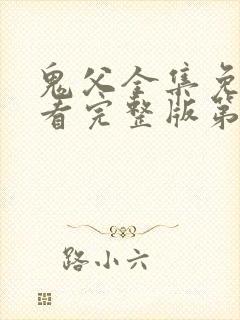 鬼父全集免
看完整版第
路小六